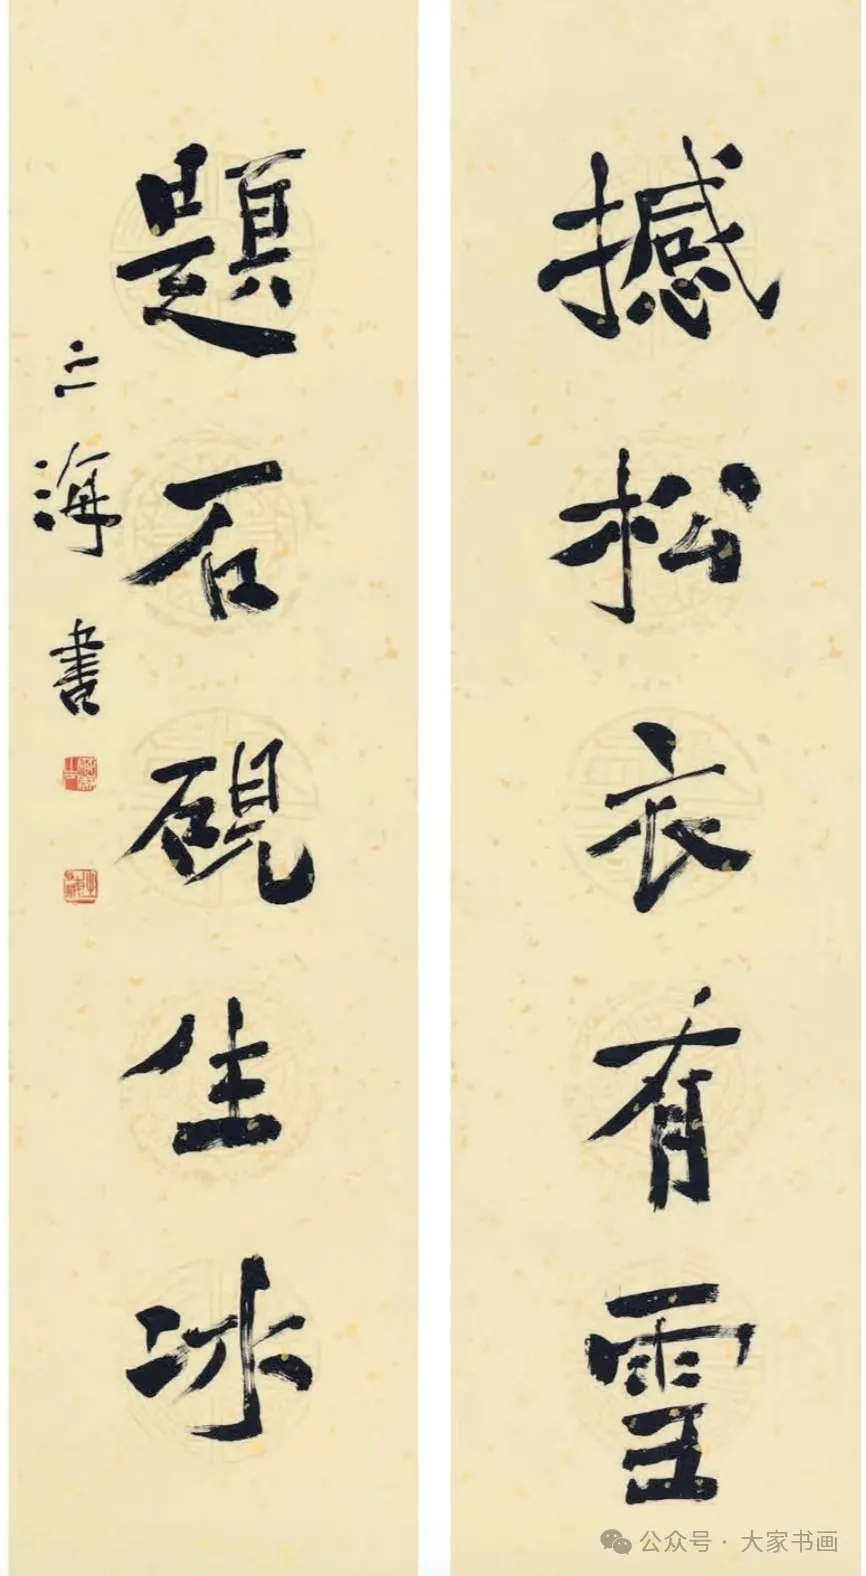 撼松衣有雪
題石硯生冰
立海書
公众号 · 大家书画